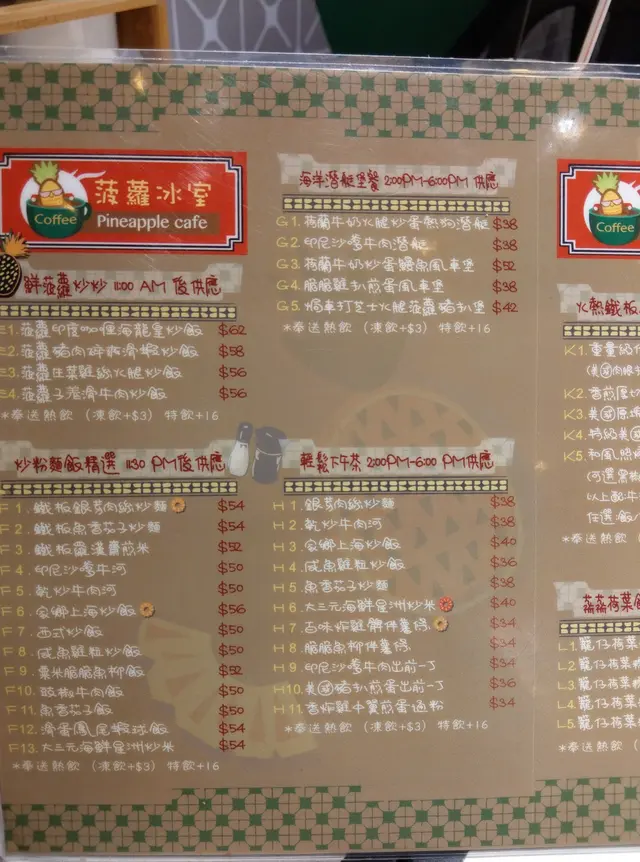 菠蘿冰室
Coffee
Pineapple cafe
鮮菠蘿炒炒 11:00 AM 後供應
E1. 菠蘿印度咖喱海龍皇炒飯 $62
E2. 菠蘿豬肉碎飛滑蝦炒飯 $58
E3. 菠蘿生菜雞絲火腿炒飯 $56
E4. 菠蘿子蘿滑牛肉炒飯 $56
*奉送熱飲 (凍飲+$3) 特飲+16
炒粉麵飯精選 11:30 PM後供應
F1. 鐵板銀芽肉絲炒麵 $54
F2. 鐵板魚香茄子炒麵 $54
F3. 鐵板羅漢齋煎米 $52
F4. 印尼沙嗲牛河 $50
F5. 乾炒牛肉河 $50
F6. 家鄉上海炒飯 $56
F7. 西式炒飯 $50
F8. 咸魚雞粒炒飯 $50
F9. 粟米脆脆魚柳飯 $52
F10. 豉椒牛肉飯 $50
F11. 魚香茄子飯 $50
F12. 滑蛋鳳尾蝦球飯 $54
F13. 大三元海鮮星洲炒米 $54
*奉送熱飲 (凍飲+$3) 特飲+16
海洋潛艇堡餐 2:00PM-6:00PM 供應
G1. 荷蘭牛奶火腿炒蛋熱狗潛艇 $38
G2. 印尼沙嗲牛肉潛艇 $38
G3. 荷蘭牛奶炒蛋鱷魚風車堡 $52
G4. 脆脆雞扒煎蛋風車堡 $38
G5. 焗車打芝士火腿菠蘿豬扒堡 $42
*奉送熱飲 (凍飲+$3) 特飲+16
輕鬆下午茶 2:00PM-6:00 PM 供應
H1. 銀芽肉絲炒麵 $38
H2. 乾炒牛肉河 $38
H3. 家鄉上海炒飯 $40
H4. 咸魚雞粒炒飯 $36
H5. 魚香茄子炒麵 $38
H6. 大三元海鮮星洲炒米 $40
H7. 百味炸雞髀伴薯條 $34
H8. 脆脆魚柳伴薯條 $34
H9. 印尼沙嗲牛肉出前一丁 $34
H10. 美國豬扒煎蛋出前一丁 $36
H11. 香炸雞中翼煎蛋通粉 $34
*奉送熱飲 (凍飲+$3) 特飲+16
Coffee
火熱鐵板
K1. 重量級
K2. 香煎厚切
K3. 美國原
K4. 特級美國
K5. 和風照燒
(可選黑椒
以上配牛
任選飯/
*奉送熱飲 (凍
荷葉飯
L1. 籠仔荷葉
L2. 籠仔荷葉
L3. 籠仔荷葉
L4. 籠仔荷葉
L5. 籠仔荷葉
*奉送熱飲 (凍